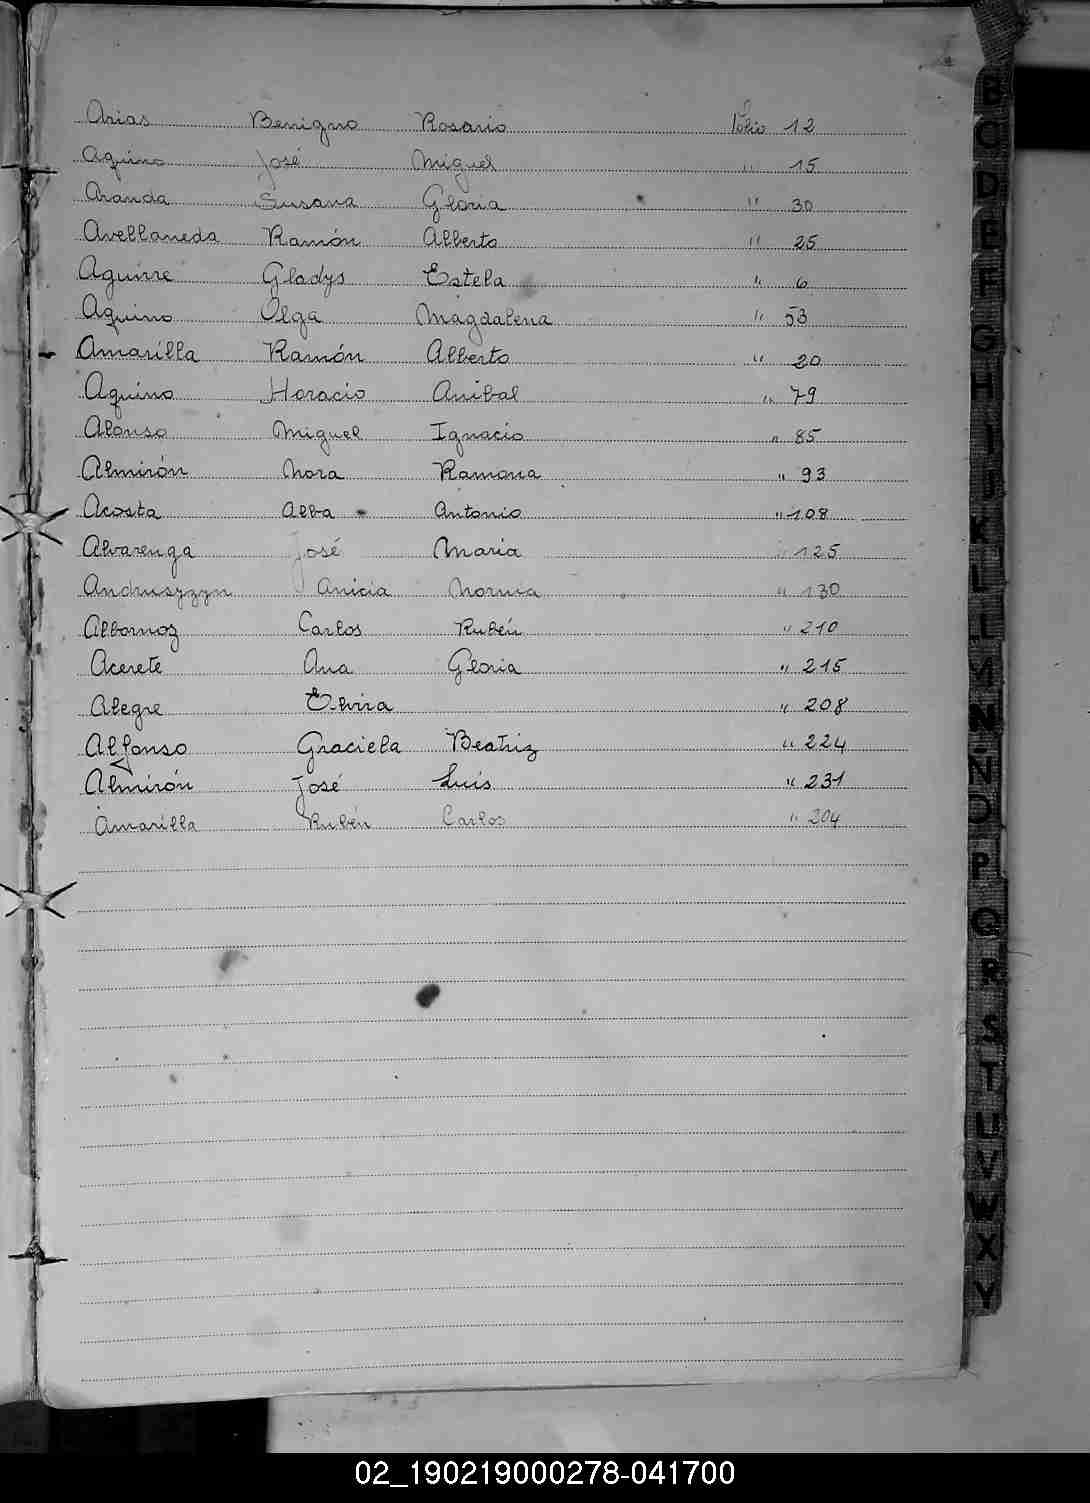 Arias Benigno Rosario Folio 12
Aquino José Miguel " 15
Aranda Susana Gloria " 30
Avellaneda Ramón Alberto " 25
Aguirre Gladys Estela " 6
Aquino Olga Magdalena " 53
Amarilla Ramón Alberto " 20
Aquino Horacio Anibal " 79
Alonso Miguel Ignacio " 85
Almirón Nora Ramona " 93
Acosta Alba Antonio " 108
Alvarenga José Maria " 125
Andrusyzyn Anicia Normia " 130
Albornoz Carlos Rubén " 210
Acerete Ana Gloria " 215
Alegre Elvira " 208
Alfonso Graciela Beatriz " 224
Almirón José Luis " 231
Amarilla Rubén Carlos " 204
B
C
D
E
F
G
H
I
J
K
L
L
M
N
Ñ
O
P
Q
R
S
T
U
V
W
X
Y
02_190219000278-041700